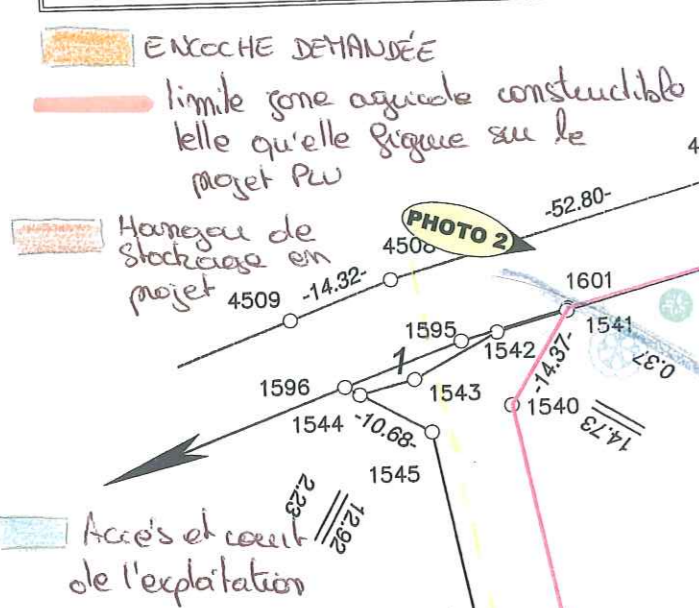 ENCOCHE DEMANDÉE
limite zone agricole constructible
telle qu'elle figure sur le
projet PLU
Hangar de
Stockage en
projet
PHOTO 2
-52.80-
4
4508
4509
-14.32-
1601
1595
1541
1542
0.37
1
1596
1543
-14.37-
1540
1544
-10.68-
14.73
1545
2.23
12.92
Accès et court
de l'exploitation